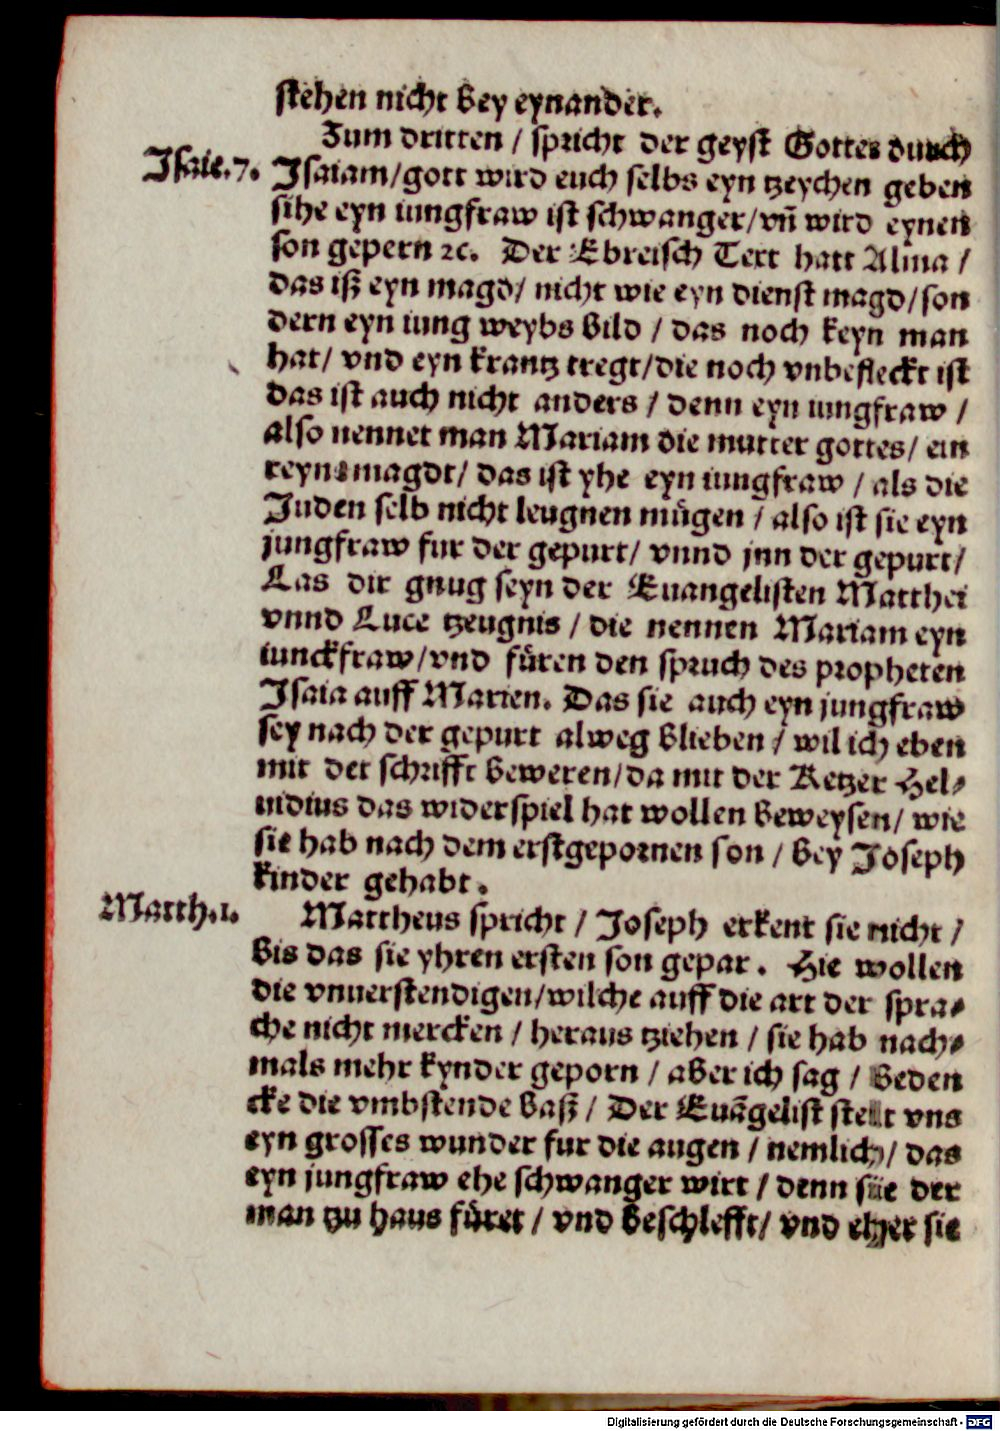 stehen nicht bey eynander.
Zum dritten / spricht der geyst Gottes durch
Isaie.7. Isaiam/gott wird euch selbs eyn tzeychen geben
sihe eyn iungfraw ist schwanger/vn̄ wird eynen
son gepern ꝛc. Der Ebreisch Text hatt Alma /
das iß eyn magd/ nicht wie eyn dienst magd/son
dern eyn iung weybs bild / das noch keyn man
hat/ vnd eyn krantz tregt/die noch vnbefleckt ist
das ist auch nicht anders / denn eyn iungfraw /
also nennet man Mariam die mutter gottes/ ein
reyne magdt/ das ist yhe eyn iungfraw / als die
Juden selb nicht leugnen mügen / also ist sie eyn
jungfraw fur der gepurt/ vnnd jnn der gepurt/
Las dir gnug seyn der Euangelisten Matthei
vnnd Luce tzeugnis / die nennen Mariam eyn
iunckfraw/vnd füren den spruch des propheten
Isaia auff Marien. Das sie auch eyn jungfraw
sey nach der gepurt alweg blieben / wil ich eben
mit der schrifft beweren/da mit der Ketzer Hel⸗
uidius das widerspiel hat wollen beweysen/ wie
sie hab nach dem erstgepornen son / bey Joseph
kinder gehabt.
Matth.1. Mattheus spricht / Joseph erkent sie nicht /
bis das sie yhren ersten son gepar. Hie wollen
die vnuerstendigen/wilche auff die art der spra⸗
che nicht mercken / heraus tziehen / sie hab nach⸗
mals mehr kynder geporn / aber ich sag / beden
cke die vmbstende baß / Der Euāgelist stellt vns
eyn grosses wunder fur die augen / nemlich/ das
eyn jungfraw ehe schwanger wirt / denn sie der
man tzu haus füret / vnd beschlefft/ vnd eher sie
Digitalisierung gefördert durch die Deutsche Forschungsgemeinschaft - DFG